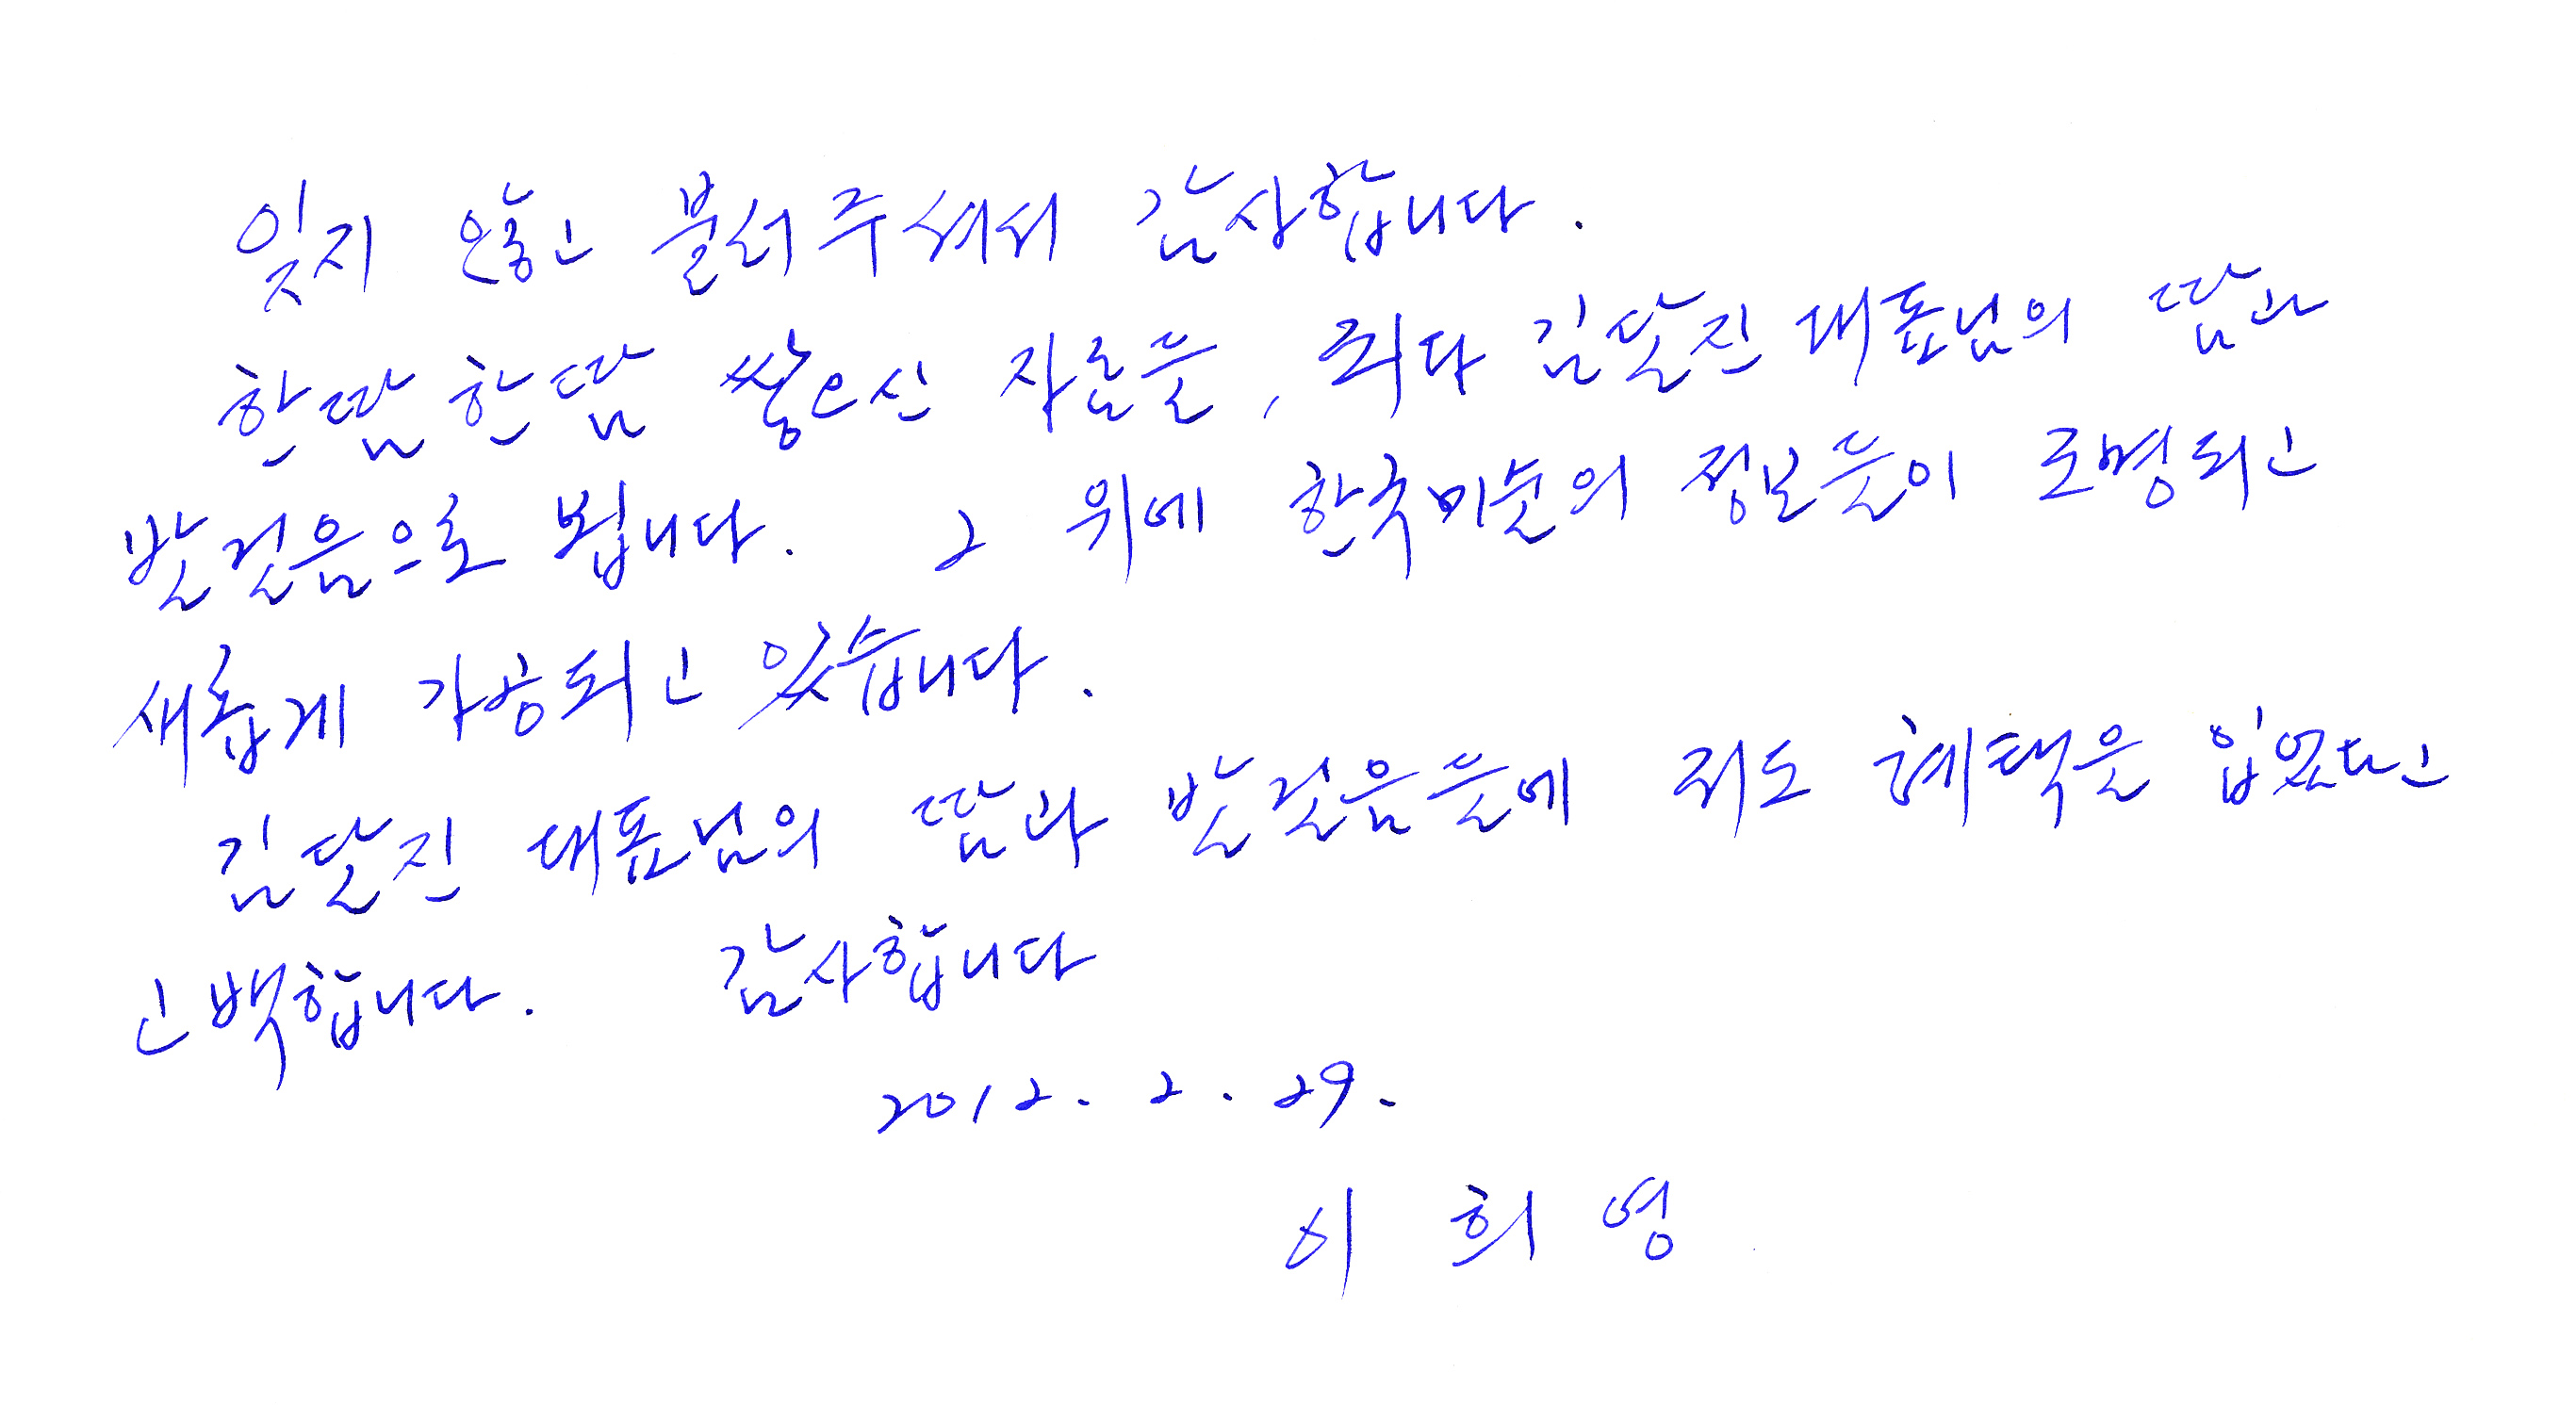 잊지 않고 불러주셔서 감사합니다.
한땀한땀 쌓으신 자료들, 죄다 김달진 대표님의 땀과
발걸음으로 뵙니다. 그 위에 한국미술의 정보들이 조명되고
새롭게 가공되고 있습니다.
김달진 대표님의 땀과 발걸음들에 저도 혜택을 입었다고
고백합니다. 감사합니다
2012. 2. 29.
이희영